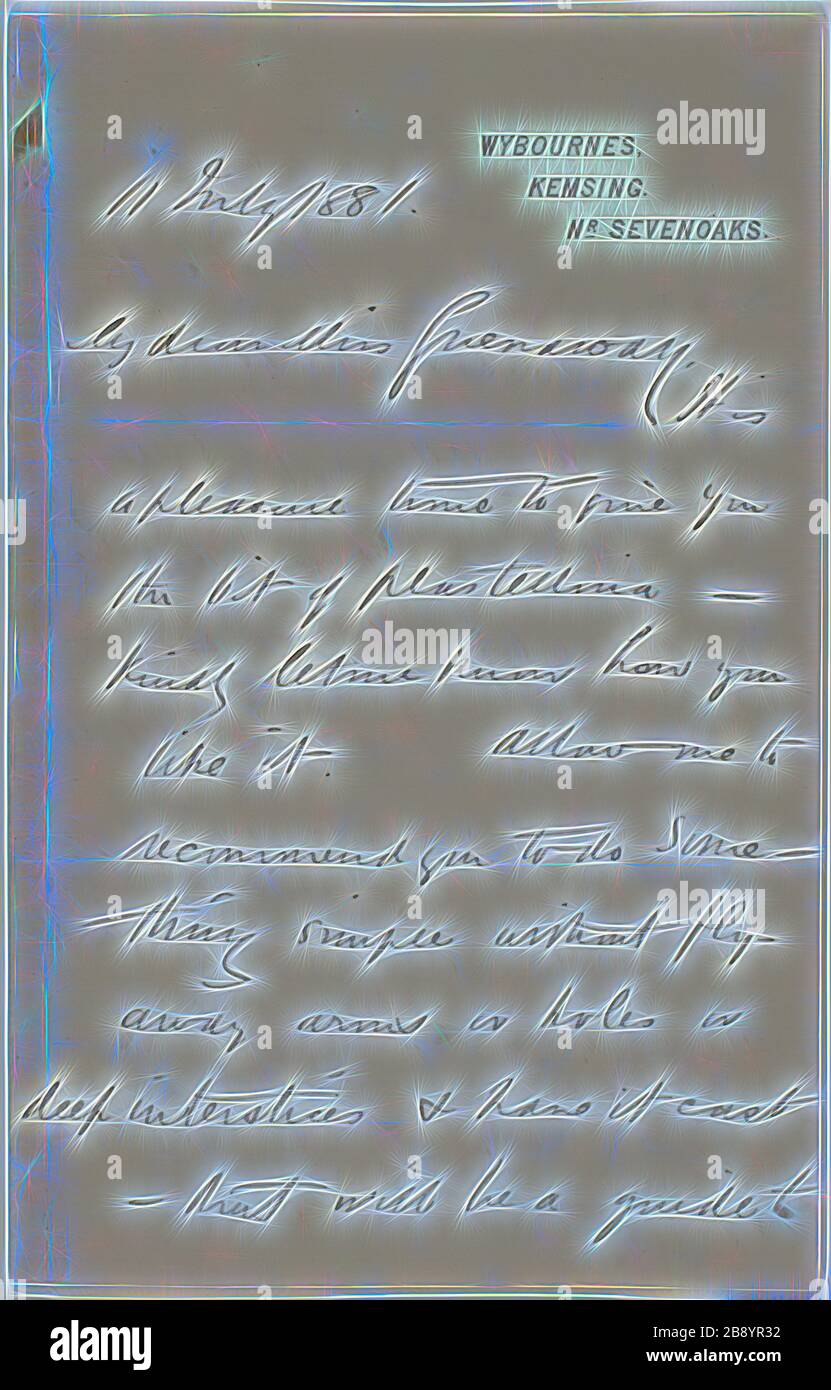 WYBOURNES,
KEMSING.
NR SEVENOAKS.
11 July 1881.
My dear Miss Greenaway, This
a pleasure to me to give you
the bit of plastellina —
kindly let me know how you
like it. Allow me to
recommend you to do some-
thing simple without fly-
away arms or holes or
deep interstices & have it cast
— that will be a guide to
alamy
Image ID: 2B8YR32
www.alamy.com